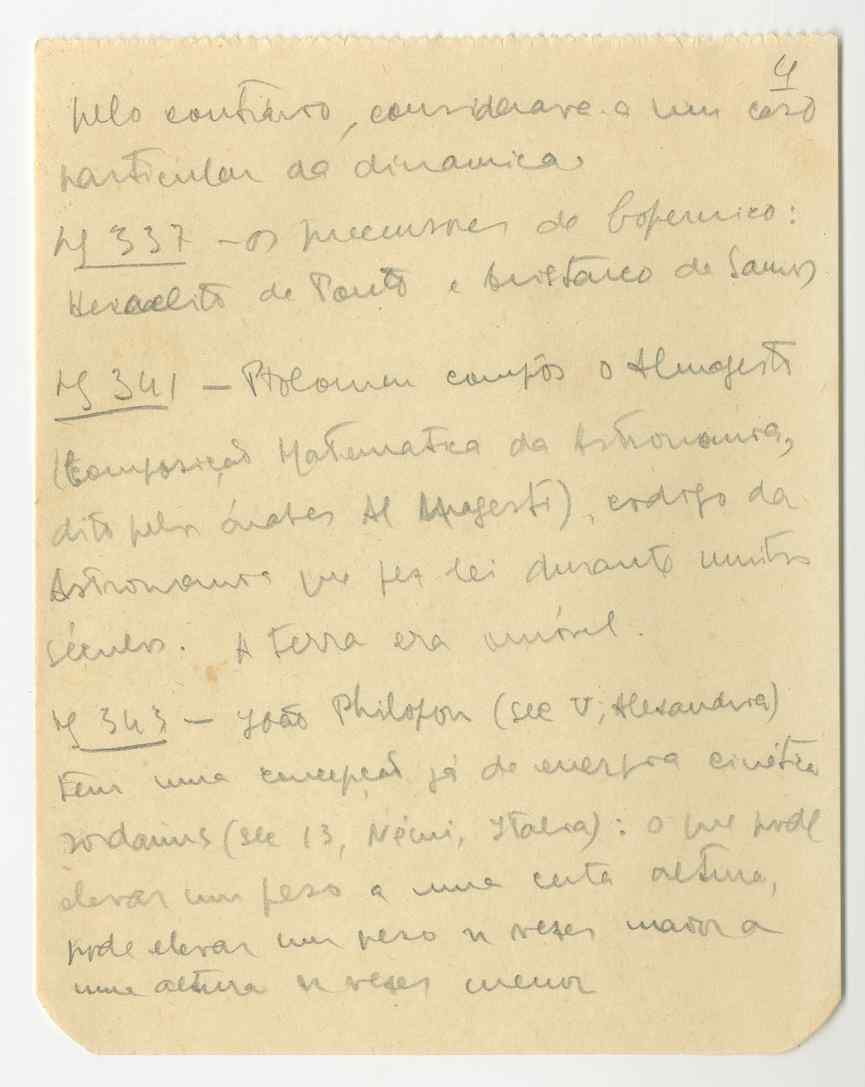 4
pelo contrário, considerava-a um caso
particular da dinamica.
Pg 337 - os precursores de Copernico:
Heraclito de Ponto e Aristarco de Samos
Pg 341 - Ptolomeu compôs o Almagesto
(Composição Matematica da Astronomia,
dito pelos árabes Al Magesti), codigo da
Astronomia que fez lei durante muitos
séculos. A terra era imóvel.
Pg 343 - João Philopon (sec V, Alexandria)
tem uma concepção já de energia cinética
Jordanus (sec 13, Némi, Italia): o que pode
elevar um peso a uma certa altura,
pode elevar um peso n vezes maior a
uma altura n vezes menor